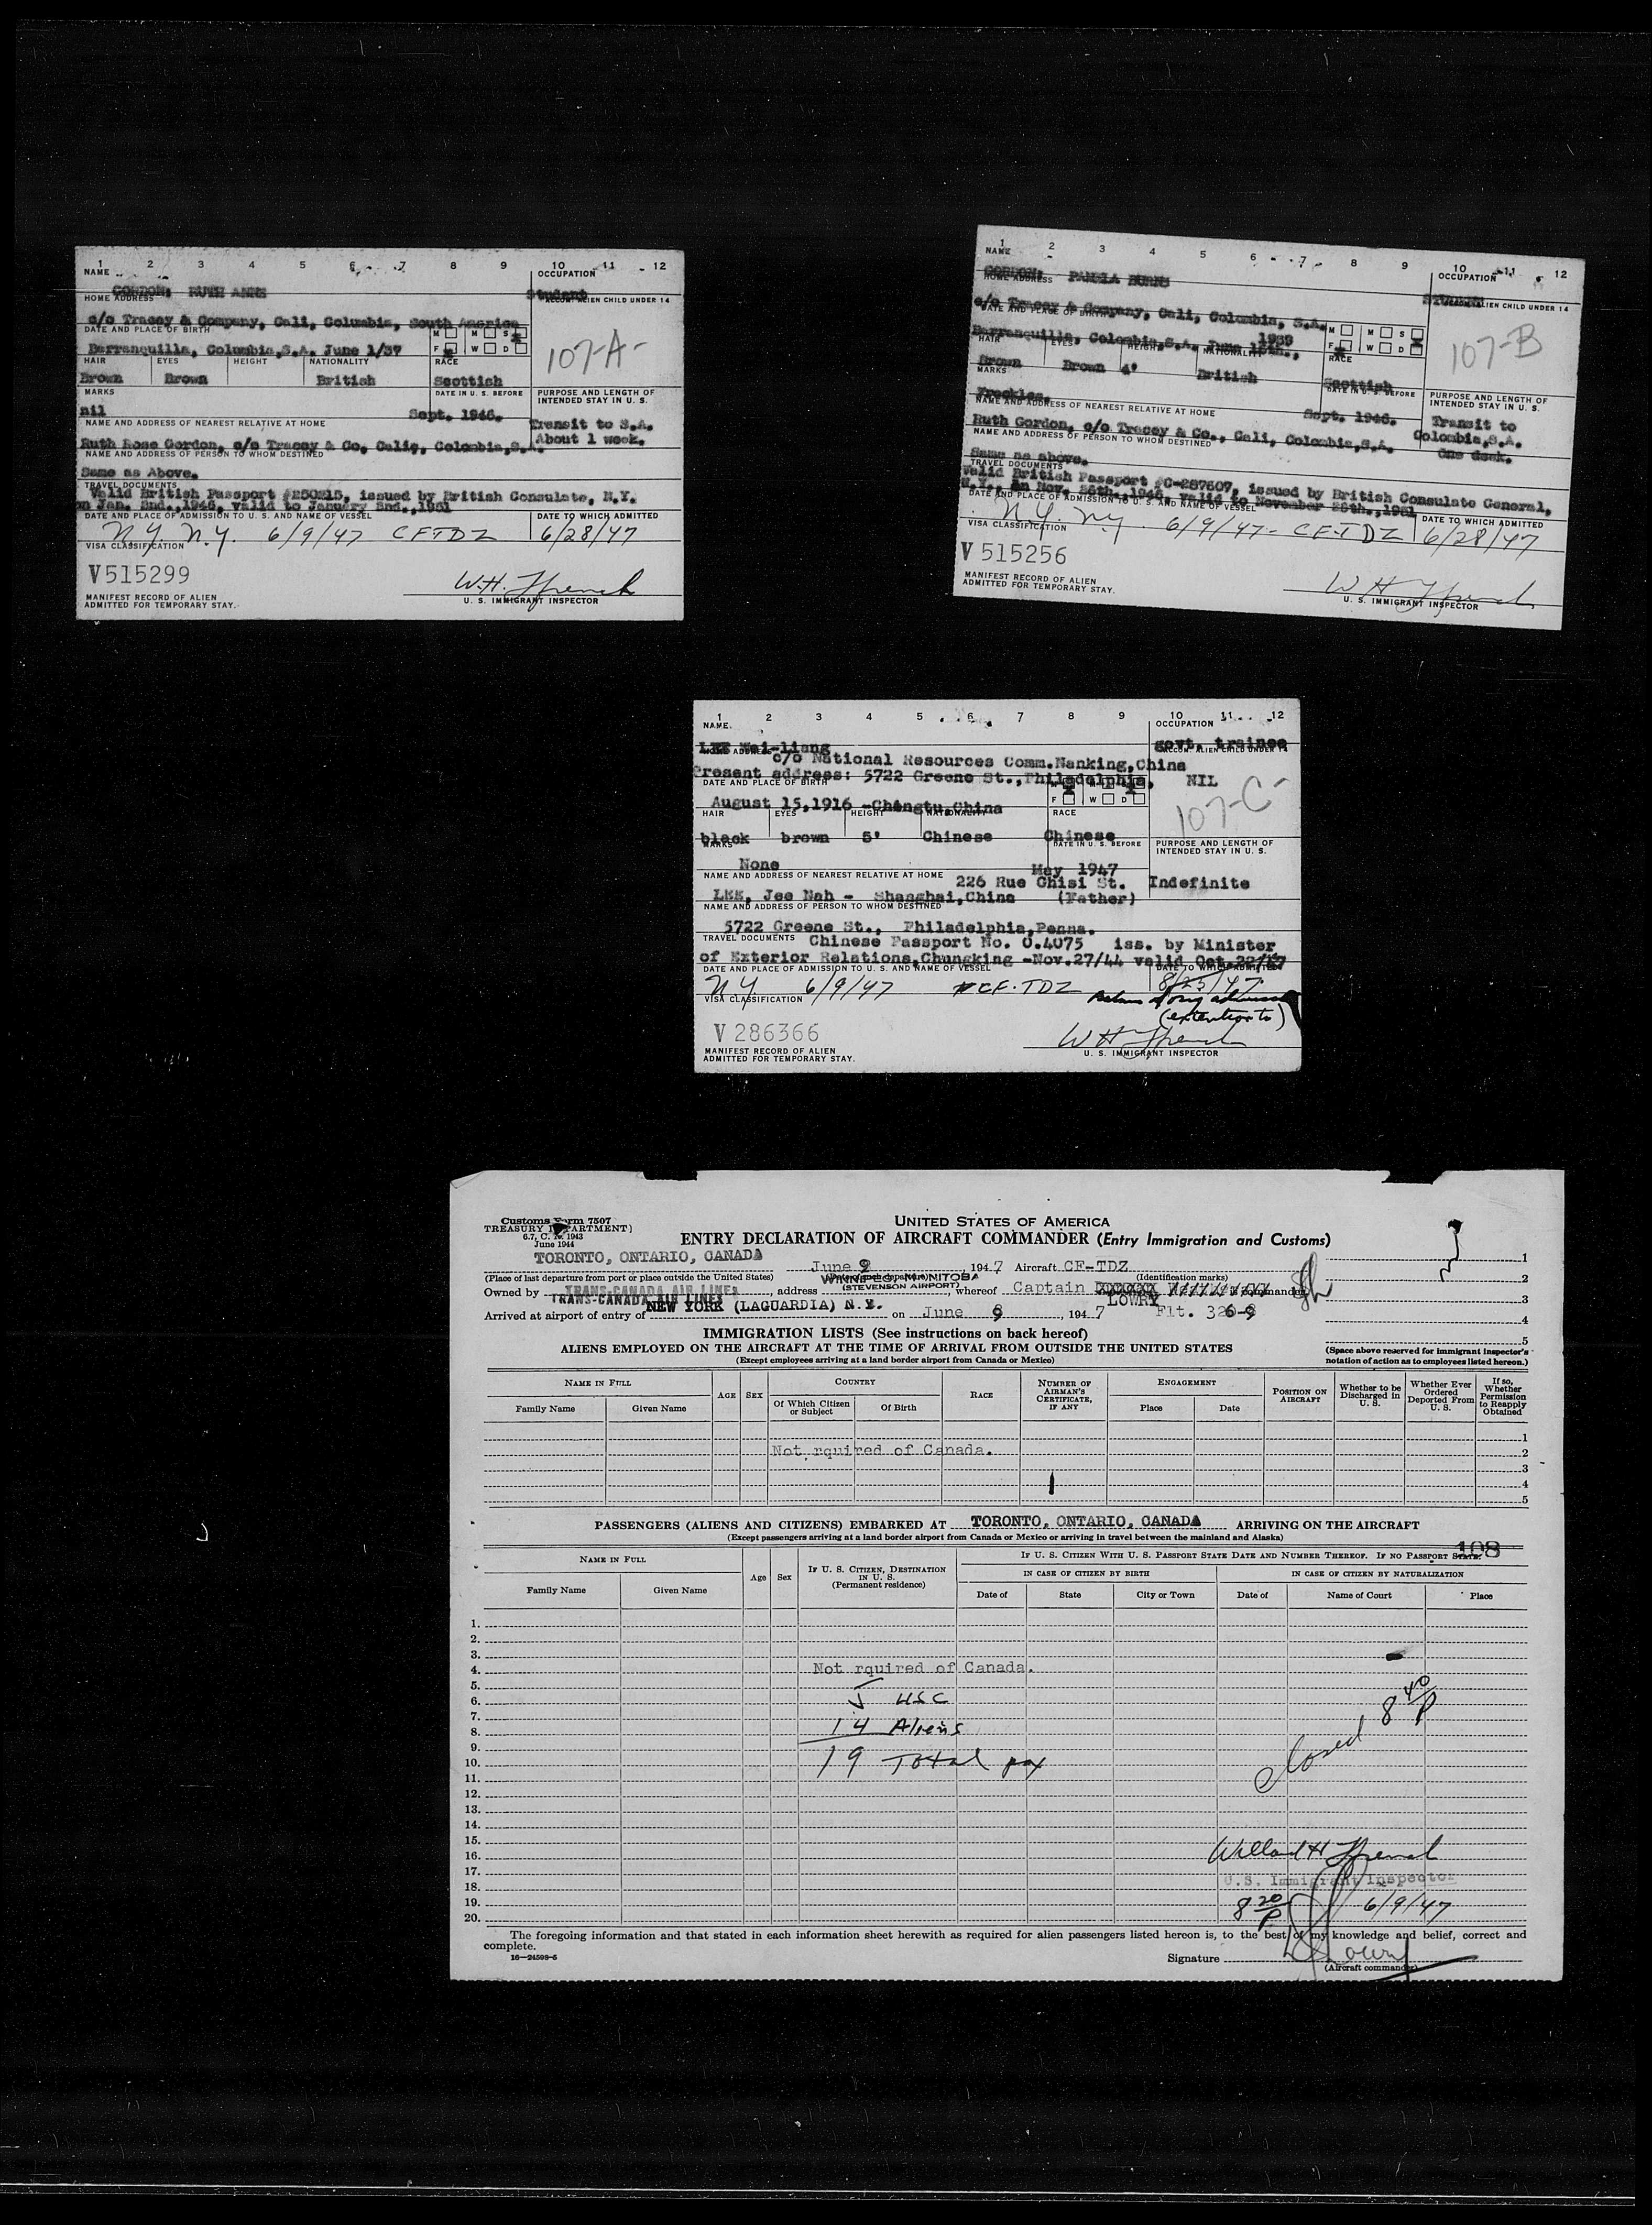 1 2 3 4 5 6 7 8 9 10 11 12
NAME OCCUPATION
GORDON: RUTH ANNE Student
HOME ADDRESS ACCOM. ALIEN CHILD UNDER 14
c/o Tracey & Company, Cali, Columbia, South America
DATE AND PLACE OF BIRTH M M S
Barranquilla, Columbia,S.A. June 1/37 F W D 107-A-
HAIR EYES HEIGHT NATIONALITY RACE
Brown Brown British Scottish
MARKS DATE IN U. S. BEFORE PURPOSE AND LENGTH OF
INTENDED STAY IN U. S.
nil Sept. 1946.
NAME AND ADDRESS OF NEAREST RELATIVE AT HOME Transit to S.A.
Ruth Rose Gordon, c/o Tracey & Co, Calig, Colombia,S.A. About 1 week.
NAME AND ADDRESS OF PERSON TO WHOM DESTINED
Same as Above.
TRAVEL DOCUMENTS
Valid British Passport #250215, issued by British Consulate, N.Y.
on Jan. 2nd.,1946, valid to January 2nd.,1951
DATE AND PLACE OF ADMISSION TO U. S. AND NAME OF VESSEL DATE TO WHICH ADMITTED
N.Y. N.Y. 6/9/47 CFTDZ 6/28/47
VISA CLASSIFICATION
V515299 W.H. Ffrench
MANIFEST RECORD OF ALIEN
ADMITTED FOR TEMPORARY STAY. U. S. IMMIGRANT INSPECTOR
1 2 3 4 5 6 7 8 9 10 11 12
NAME OCCUPATION
GORDON: PAMELA BURNS STUDENT
HOME ADDRESS ALIEN CHILD UNDER 14
c/o Tracey & Company, Cali, Colombia, S.A.
DATE AND PLACE OF BIRTH M M S
Barranquilla, Colombia,S.A. June 15th., 1939 F W D 107-B
HAIR EYES HEIGHT NATIONALITY RACE
Brown Brown 4' British Scottish
MARKS DATE IN U. S. BEFORE PURPOSE AND LENGTH OF
INTENDED STAY IN U. S.
Freckles. Sept. 1946.
NAME AND ADDRESS OF NEAREST RELATIVE AT HOME Transit to
Ruth Gordon, c/o Tracey & Co., Cali, Colombia,S.A. Colombia,S.A.
NAME AND ADDRESS OF PERSON TO WHOM DESTINED One deek.
Same as above.
TRAVEL DOCUMENTS
Valid British Passport #C-287607, issued by British Consulate General,
N.Y., on Nov. 26th.,1946, valid to November 26th.,1951
DATE AND PLACE OF ADMISSION TO U. S. AND NAME OF VESSEL DATE TO WHICH ADMITTED
N.Y. N.Y. 6/9/47- CF-TDZ 6/28/47
VISA CLASSIFICATION
V515256 W H Ffrench
MANIFEST RECORD OF ALIEN
ADMITTED FOR TEMPORARY STAY. U. S. IMMIGRANT INSPECTOR
1 2 3 4 5 6 7 8 9 10 11 12
NAME OCCUPATION
LEE Wei-liang govt. trainee
HOME ADDRESS ACCOM. ALIEN CHILD UNDER 14
c/o National Resources Comm.Nanking,China
Present address: 5722 Greene St.,Philadelphia, NIL
DATE AND PLACE OF BIRTH M M S
August 15,1916 -Chengtu,China F W D 107-C-
HAIR EYES HEIGHT NATIONALITY RACE
black brown 5' Chinese Chinese
MARKS DATE IN U. S. BEFORE PURPOSE AND LENGTH OF
INTENDED STAY IN U. S.
None May 1947
NAME AND ADDRESS OF NEAREST RELATIVE AT HOME 226 Rue Ghisi St. Indefinite
LEE, Jee Nah - Shanghai,China (Father)
NAME AND ADDRESS OF PERSON TO WHOM DESTINED
5722 Greene St., Philadelphia,Penna.
TRAVEL DOCUMENTS Chinese Passport No. 0.4075 iss. by Minister
of Exterior Relations,Chungking -Nov.27/44 valid Oct.22/47
DATE AND PLACE OF ADMISSION TO U. S. AND NAME OF VESSEL DATE TO WHICH ADMITTED
NY 6/9/47 CF-TDZ 8/25/47
VISA CLASSIFICATION (extention to)
V 286366 W H Ffrench
MANIFEST RECORD OF ALIEN
ADMITTED FOR TEMPORARY STAY. U. S. IMMIGRANT INSPECTOR
Customs Form 7507
TREASURY DEPARTMENT
6.7, C. R. 1943
June 1944
UNITED STATES OF AMERICA
ENTRY DECLARATION OF AIRCRAFT COMMANDER (Entry Immigration and Customs)
TORONTO, ONTARIO, CANADA June 9, 1947 Aircraft CF-TDZ 1
(Place of last departure from port or place outside the United States) (Date of such departure) (Identification marks) 2
WINNIPEG, MANITOBA
Owned by TRANS-CANADA AIR LINES, address (STEVENSON AIRPORT), whereof Captain LOWRY is commander, 3
TRANS-CANADA AIR LINES
Arrived at airport of entry of NEW YORK (LAGUARDIA) N.Y. on June 9, 1947 Flt. 326-9 4
5
IMMIGRATION LISTS (See instructions on back hereof)
ALIENS EMPLOYED ON THE AIRCRAFT AT THE TIME OF ARRIVAL FROM OUTSIDE THE UNITED STATES
(Except employees arriving at a land border airport from Canada or Mexico)
(Space above reserved for immigrant inspector's notation of action as to employees listed hereon.)
NAME IN FULL AGE SEX COUNTRY RACE NUMBER OF AIRMAN'S CERTIFICATE, IF ANY ENGAGEMENT POSITION ON AIRCRAFT Whether to be Discharged in U. S. Whether Ever Ordered Deported From U. S. If so, Whether Permission to Reapply Obtained
Family Name Given Name Of Which Citizen or Subject Of Birth Place Date
1
Not rquired of Canada. 2
3
4
5
PASSENGERS (ALIENS AND CITIZENS) EMBARKED AT TORONTO, ONTARIO, CANADA ARRIVING ON THE AIRCRAFT
(Except passengers arriving at a land border airport from Canada or Mexico or arriving in travel between the mainland and Alaska)
108
NAME IN FULL Age Sex IF U. S. CITIZEN, DESTINATION IN U. S. (Permanent residence) IF U. S. CITIZEN WITH U. S. PASSPORT STATE DATE AND NUMBER THEREOF. IF NO PASSPORT STATE:
IN CASE OF CITIZEN BY BIRTH IN CASE OF CITIZEN BY NATURALIZATION
Family Name Given Name Date of State City or Town Date of Name of Court Place
1.
2.
3.
4. Not rquired of Canada.
5.
6. 5 USC
7. 8 40/P
8. 14 Aliens
9. Closed
10. 19 Total pax
11.
12.
13.
14.
15.
16. Willard H Ffrench
17.
18. U.S. Immigrant Inspector
19. 8 20/P 6/9/47
20.
The foregoing information and that stated in each information sheet herewith as required for alien passengers listed hereon is, to the best of my knowledge and belief, correct and
complete.
16-24598-5 Signature Lowry
(Aircraft commander)